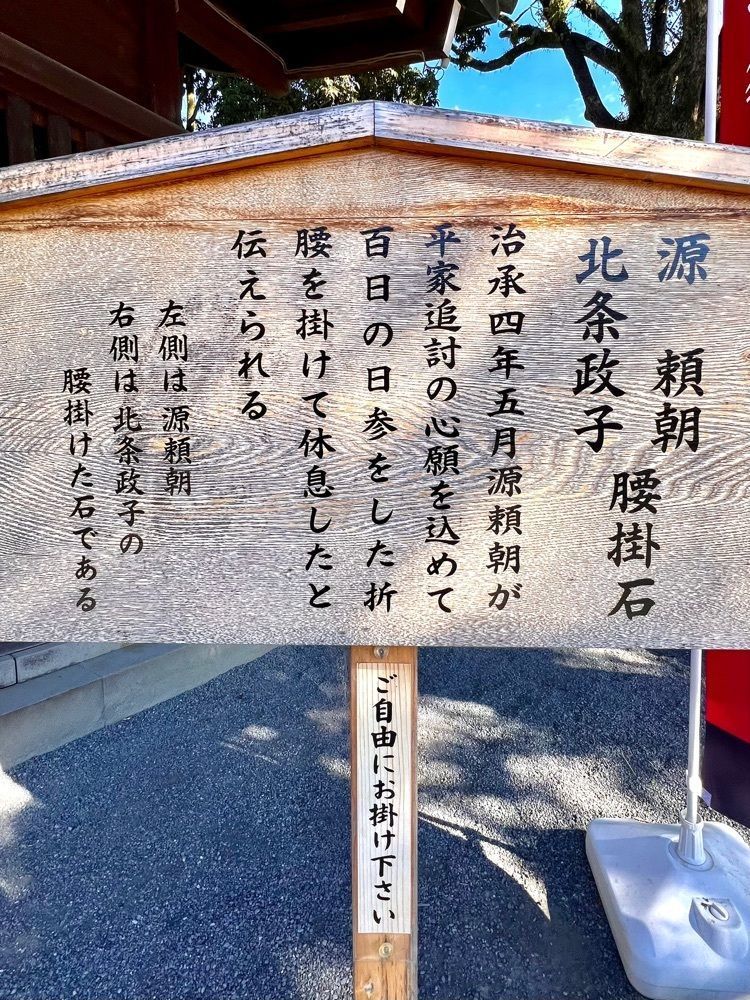 源 頼朝
北条政子
腰掛石
治承四年五月源頼朝が
平家追討の心願を込めて
百日の日参をした折
腰を掛けて休息したと
伝えられる
左側は源頼朝
右側は北条政子の
腰掛けた石である
ご自由にお掛け下さい